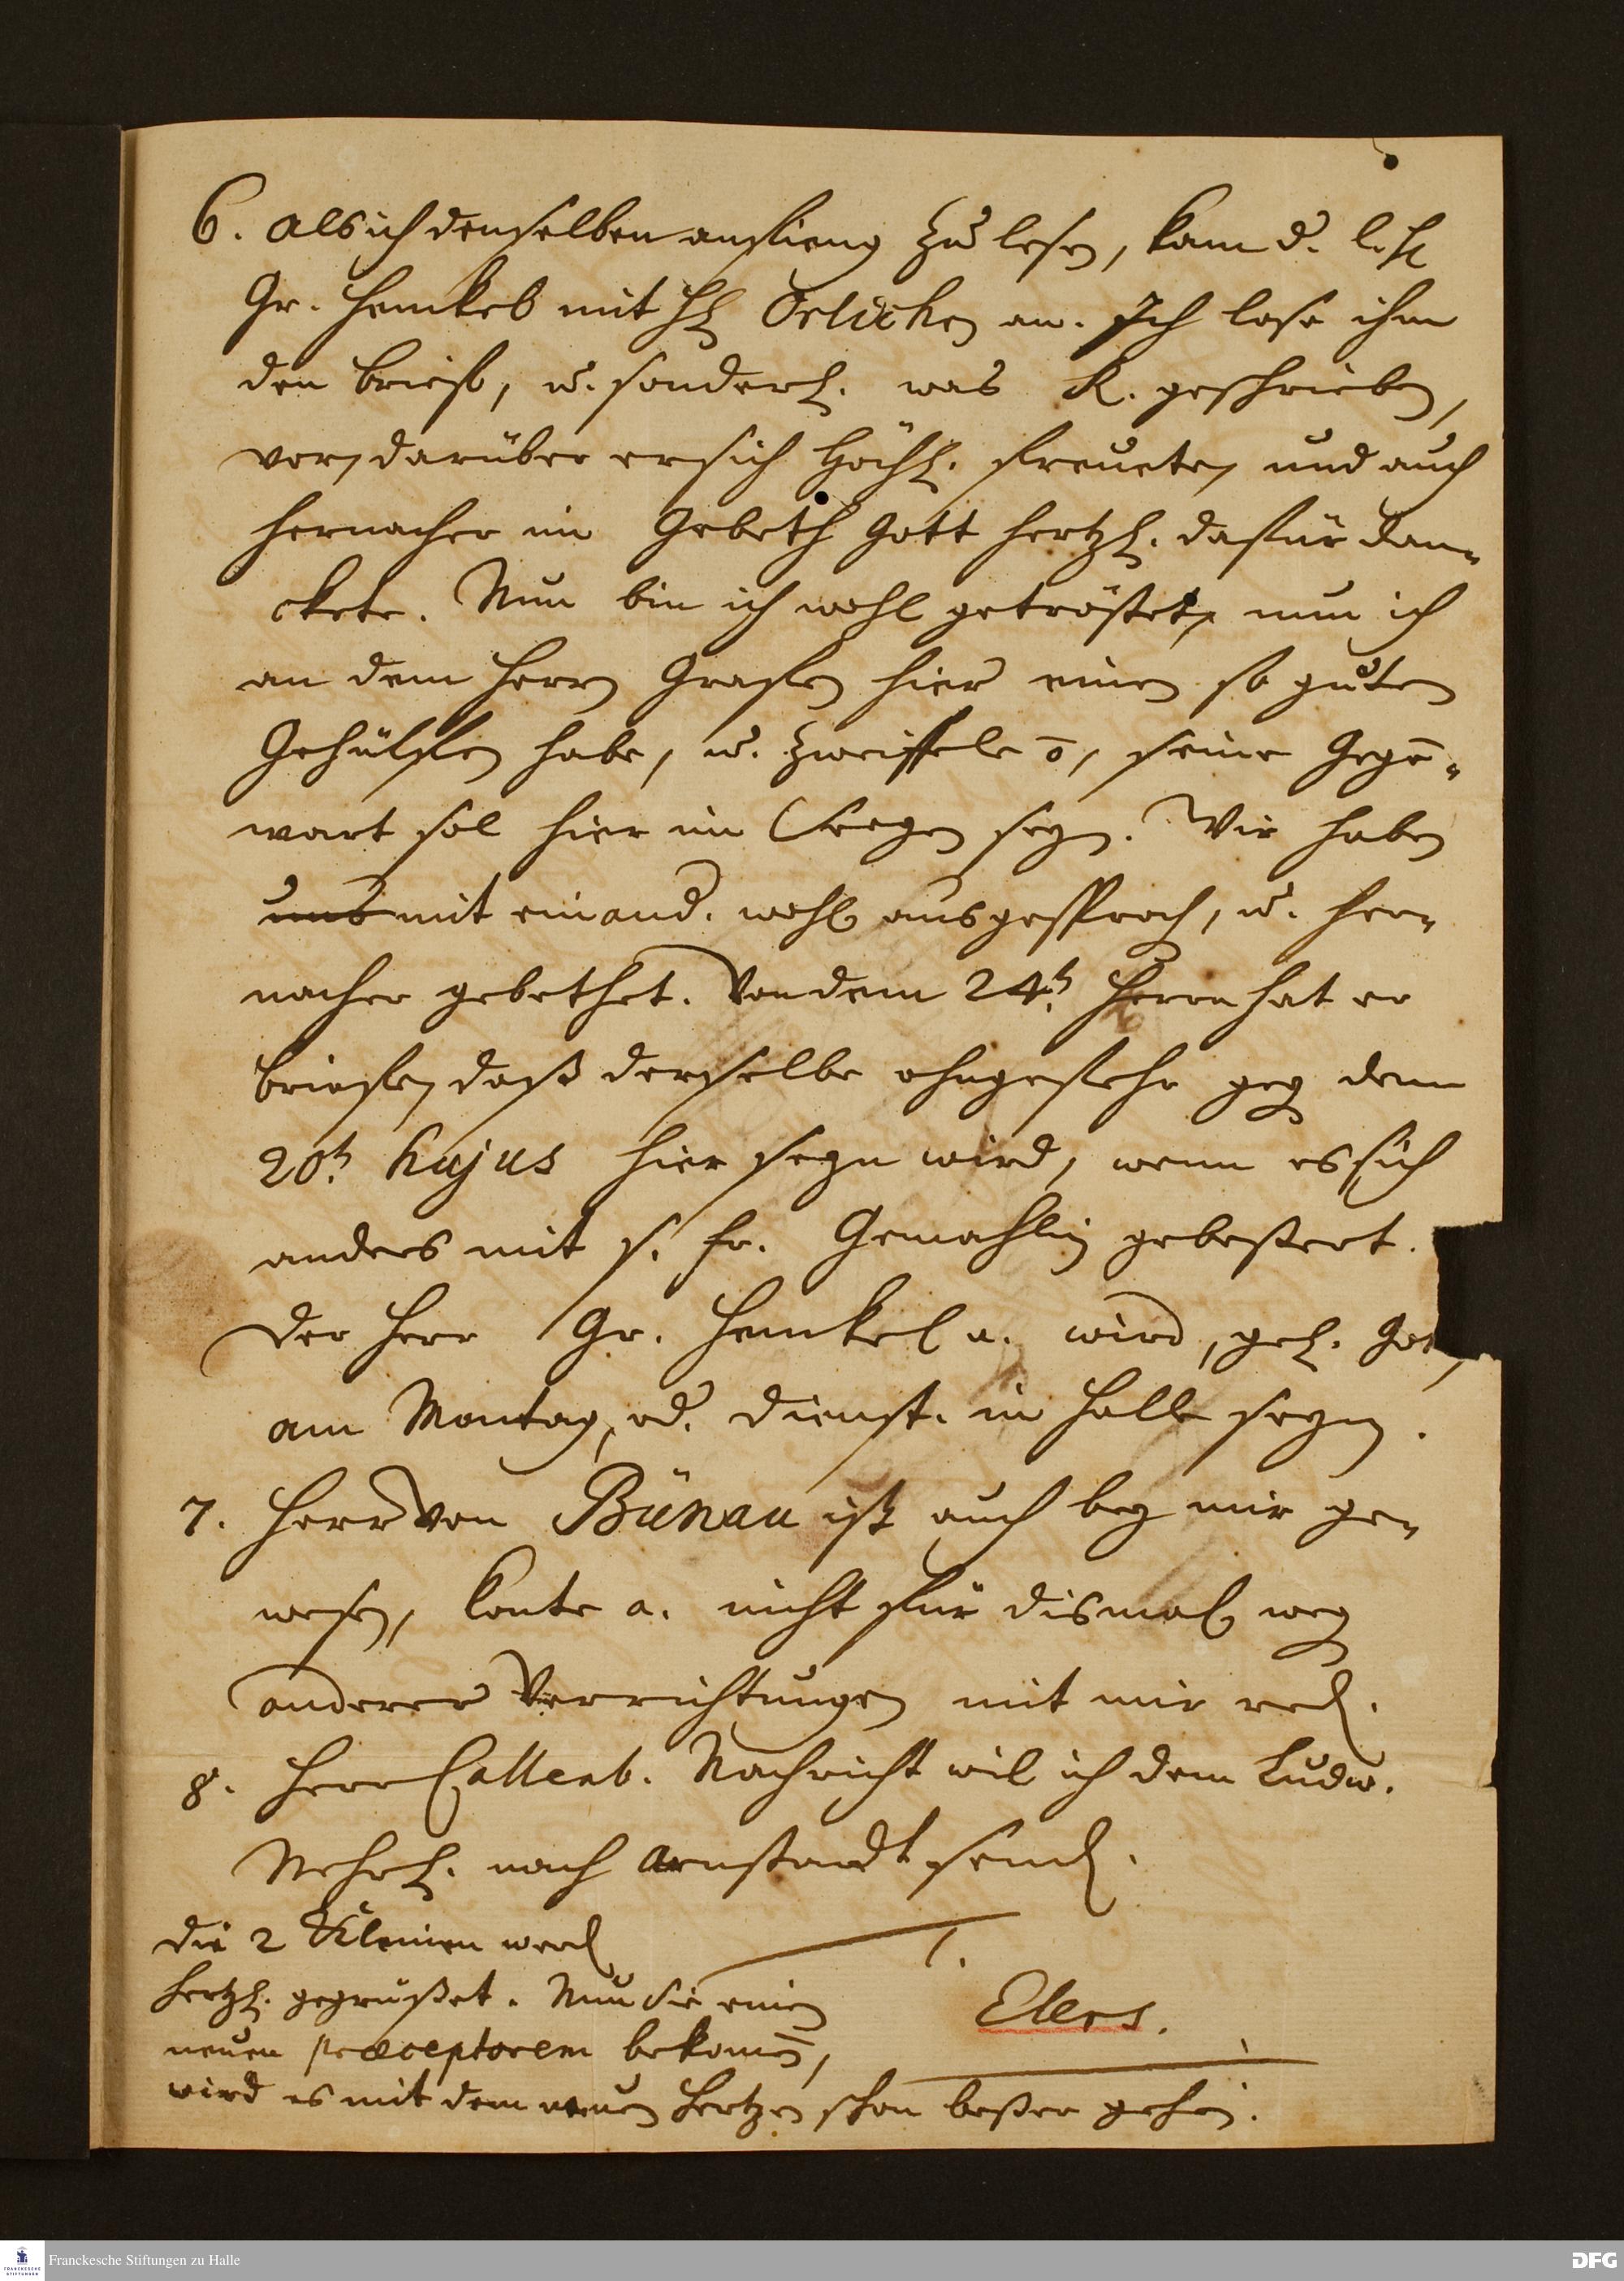 6. Als ich denselben anfieng zu lesen, kam d. l. H
Gr. Henckel mit H Orlichen an. Ich lase ihm
den brieff, u. sonderl. was K. geschrieben,
vor, darüber er sich höchl. freuete, und auch
hernacher im Gebeth Gott hertzl. dafür dan-
ckete. Nun bin ich wohl getröstet, nun ich
an dem Herrn Grafen hier einen so guten
Gehülffen habe, u. zweiffele ō, seine Gegē-
wart sol hier im Seegen seyn. Wir haben
uns mit einand. wohl ausgesproch, u. her-
nacher gebethet. Von dem 24t. Herrn hat er
briefe, daß derselbe ohngefehr geg dem
20t. hujus hier seyn wird, wenn es sich
anders mit s. Fr. Gemahlin gebeßert.
Der Herr Gr. Henckel a. wird, gel. Got,
am Montag, od. Dienst. in Halle seyn.
7. Herr von Bünau ist auch bey mir ge-
wesen, konte a. nicht für dismal weg
anderer Verrichtungen mit mir red.
8. Herr Callenb. Nachricht wil ich dem Ludw.
nach Arnstadt send.
Die 2 Kleinen werd
hertzl. gegrüßet. Nun Sie einen
neuen præceptorem bekomē,
wird es mit dem neuen Hertzen schon beßer gehen.
Elers.
Franckesche Stiftungen zu Halle
DFG